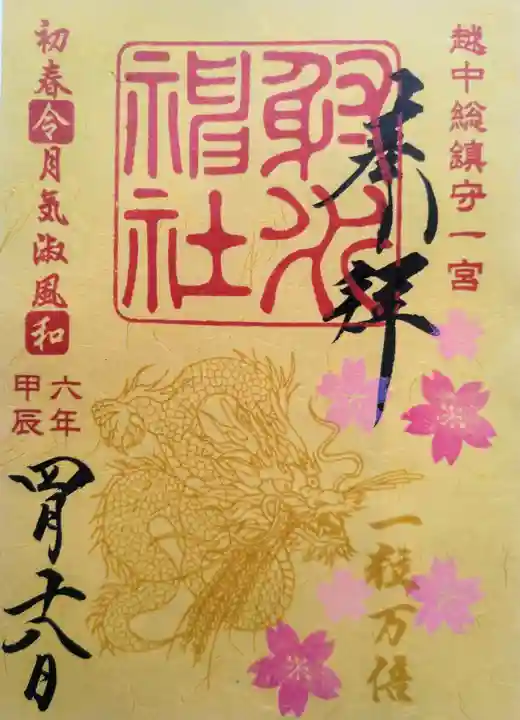 越中総鎮守一宮
奉拝
射水神社
一粒万倍
初春令月気淑風和
六年
甲辰
四月十八日